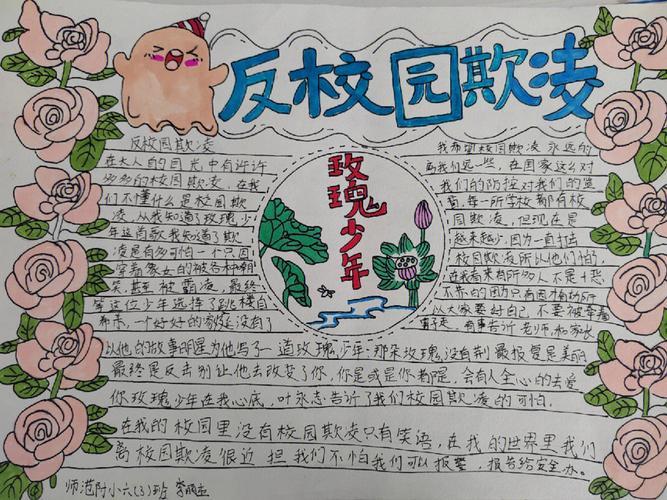 反校园欺凌
玫瑰少年
反校园欺凌
在大人的目光中有许许
多多的校园欺凌,在我
们不懂什么是校园欺
凌,从我知道了玫瑰少
年这首歌我知道了欺
凌是有多可怕一个只因
穿着像女的被各种嘲
笑,甚至被霸凌,最终
这位少年选择了跳楼自
一个好好的家庭没有了
我希望校园欺凌永远的
离我们远一些,在国家这么对
我们的防控对我们的
每一所学校都有校
园欺凌,但现在是
越来越少,因为一直打击
校园欺凌所以他们怕
在我看来有所多人不是十恶
不
以大家要对自己,不要被
有事告诉老师,和家长
以他的故事明星为他写了一道玫瑰少年:那朵玫瑰,没有荆棘最是美丽
最终是反击别让他去改变了你,你是或是你都是,会有人全心的去爱
你玫瑰少年在我心底,叶永志告诉了我们校园欺凌的可怕.
在我的校园里没有校园欺凌只有笑语,在我的世界里我们
离校园欺凌很近但我们不怕我们可以报警,报告给安全办。
师范附小六(3)班